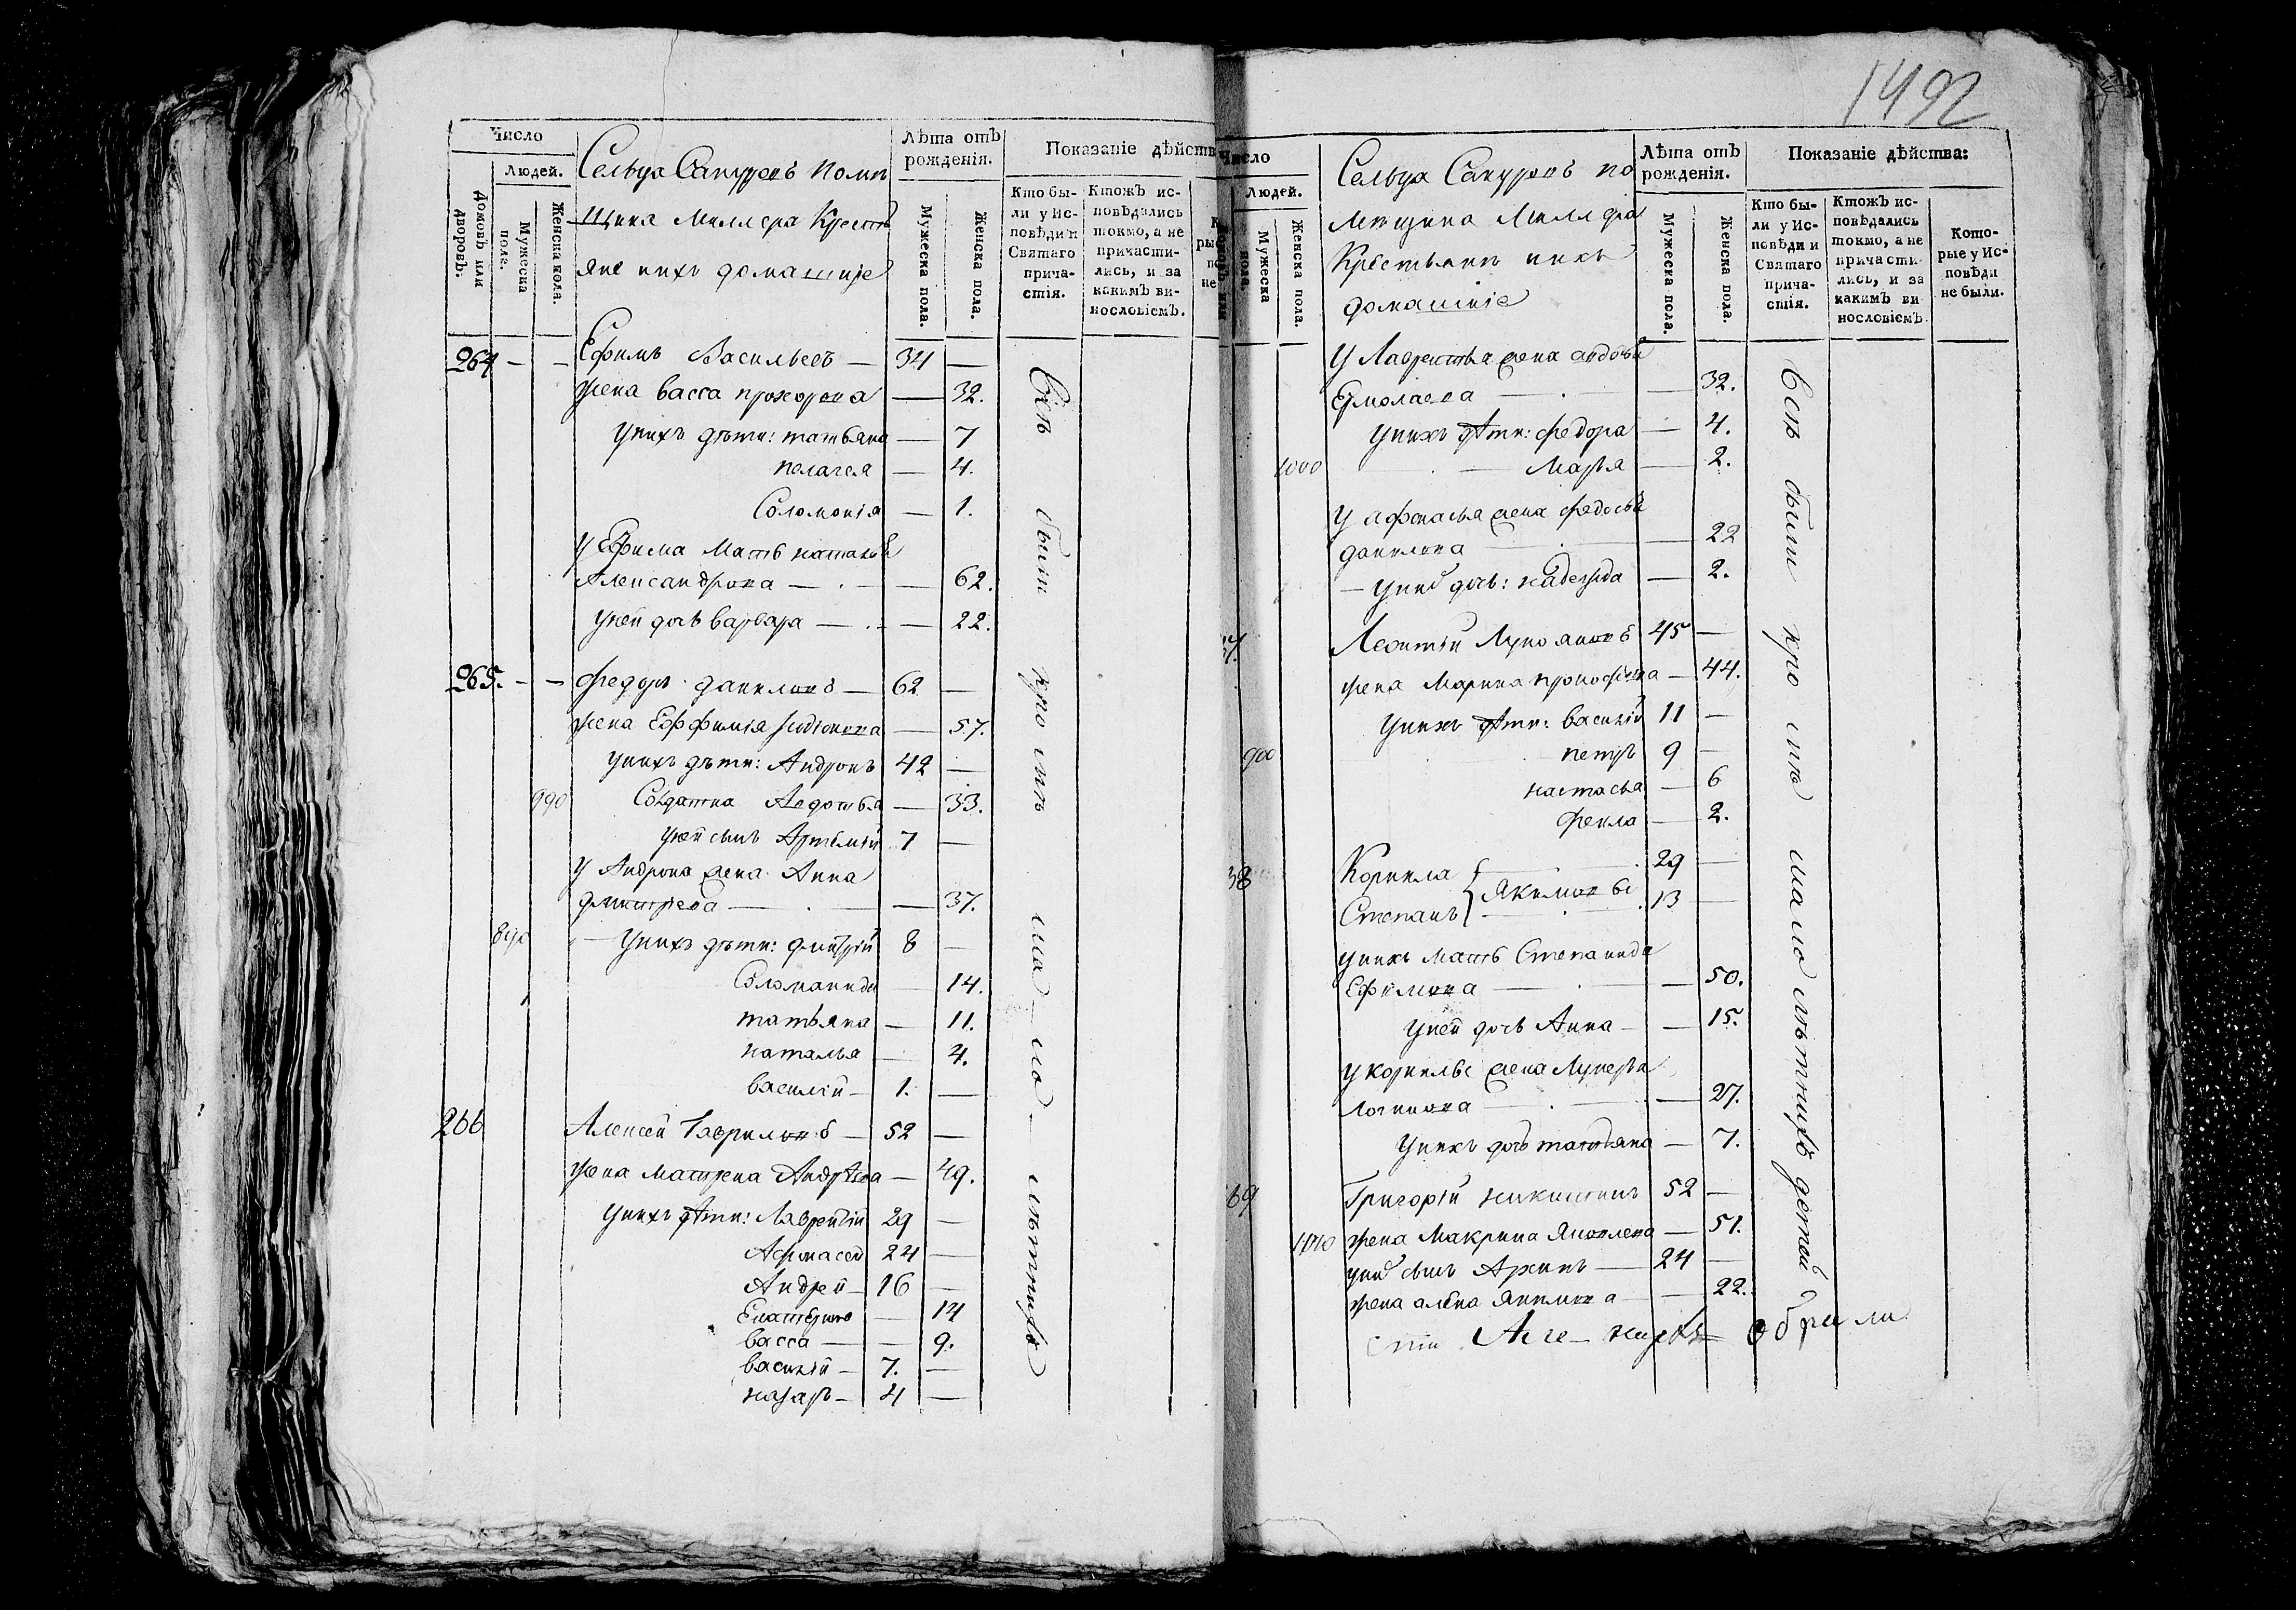 Число
Людей.
Домовъ или дворовъ.
Мужеска пола.
Женска пола.
Сельца Сапуновъ поме
щика Миллера Крестъ
яне ихъ домашніе
Лѣта отъ рожденія.
Мужеска пола.
Женска пола.
Показаніе дѣйств
Кто бы-
ли у Ис-
повѣди и
Святаго
прича-
стія.
Ктожъ ис-
повѣдались
токмо, а не
причасти-
лись, и за
какимъ ви-
нословіемъ.
264 — — Ефимъ Васильевъ — 34 —
жена васса прохорова — 32.
у нихъ дѣти: татьяна — 7
пелагея — 4.
Соломонія — 1.
У Ефима мать наталья
Александрова — 62.
у ней дочь варвара — 22.
265. — — федоръ даниловъ — 62 —
жена Еффимія родіонова — 57.
у нихъ дѣти: Андронъ 42 —
990 Солдатка Авдотья — 33.
у ней сынъ Артемій 7 —
У Андрона жена Анна
дмитрева — 37.
890 — у нихъ дѣти: дмитрій 8 —
Соломанида — 14.
татьяна — 11.
наталья — 4.
василій — 1. —
266 Алексей Гавриловъ — 52 —
жена матрена Андрѣева — 49.
у нихъ дѣти: Лаврентій 29 —
Афонасей 24 —
Андрей — 16 —
Екатерина — 14
васса — 9.
василій — 7. —
назаръ — 4 —
Всѣ были кро мѣ ма — ло — лѣтнихъ
1492
Число
Людей.
Мужеска пола.
Женска пола.
Сельца Сапуновъ по
мещика Миллера
Крестьянъ ихъ
домашніе
Лѣта отъ
рожденія.
Мужеска пола.
Женска пола.
Показаніе дѣйства:
Кто бы-
ли у Ис-
повѣди и
Святаго
прича-
стія.
Ктожъ ис-
повѣдались
токмо, а не
причасти-
лись, и за
какимъ ви-
нословіемъ
Кото-
рые у Ис-
повѣди
не были.
У Лаврентья жена авдотья
Ермолаева — 32.
у нихъ дѣти: федора — 4.
1000 — Марья — 2.
у афонасья жена федосья
данилова — 22
— у нихъ дочь: надежда — 2.
Леонтій Лукояновъ 45 —
жена Марина прокофьева — 44.
у нихъ дѣти: василій 11 —
900 петръ 9 —
настасья — 6
фекла — 2.
Корнила 29 —
Степанъ Якимовы 13 —
у нихъ мать Степанида
Ефимова — 50.
у ней дочь Анна — 15.
у корнилы жена Лукерья
Логинова — 27.
у нихъ дочь татьяна — 7.
69 Григорій никитинъ 52 —
1010 жена Макрина Яковлева — 51.
у нихъ сынъ Архипъ — 24 —
жена алена Якимова — 22.
Всѣ были кро мѣ мало лѣтнихъ детей